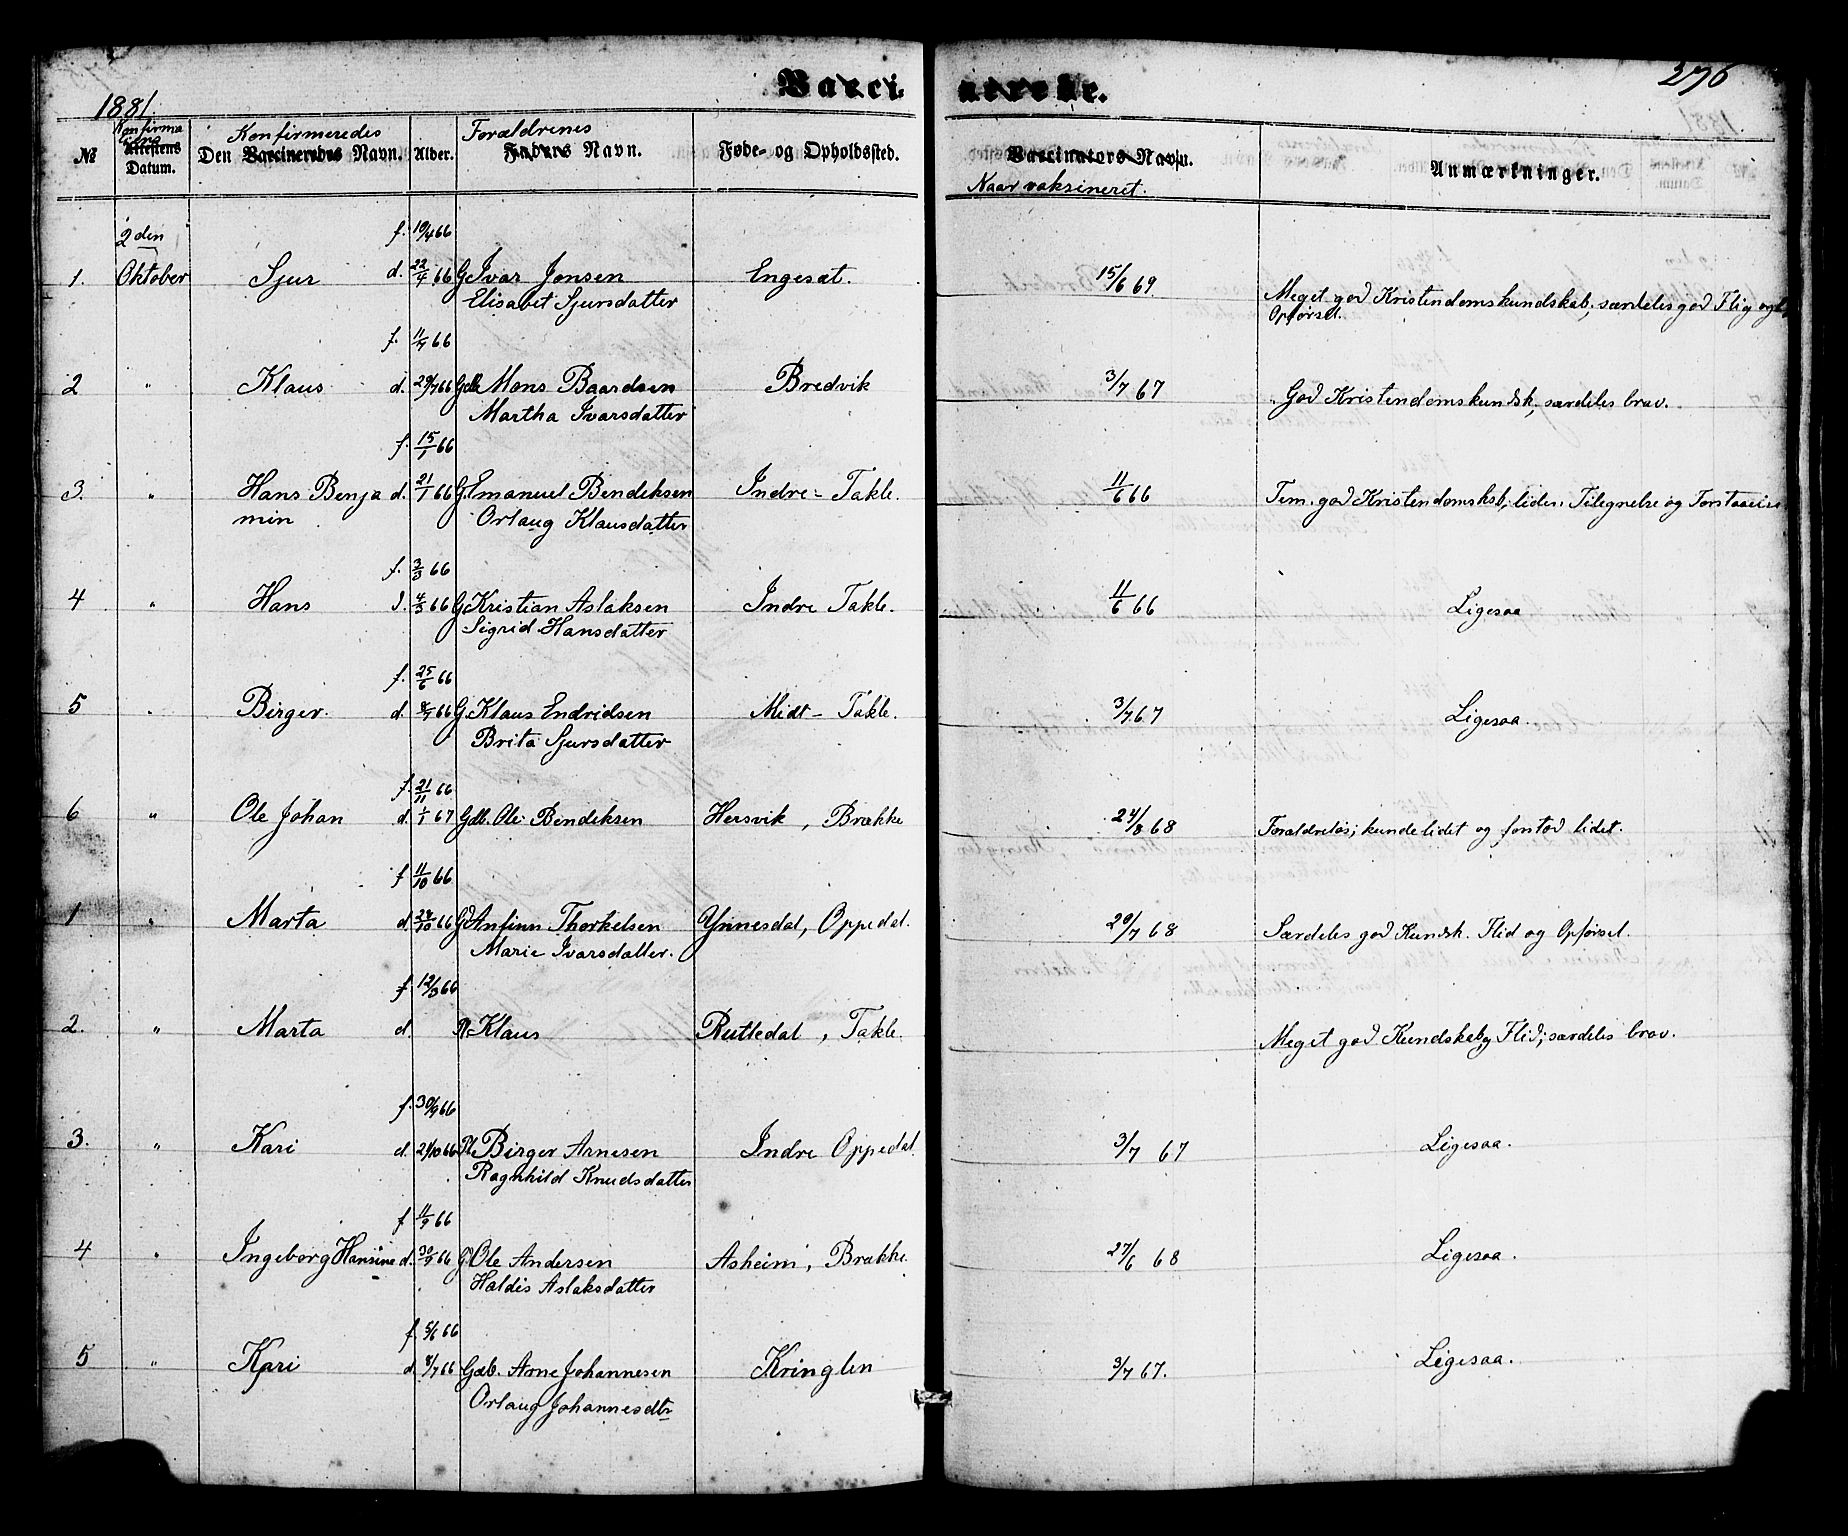 1881
Vaccinerede.
276
№
Konfirmations
Attestens Datum.
Konfirmeredes
Den Vaccineredes Navn.
Alder.
Forældrenes
Faders Navn.
Føde- og Opholdssted.
Vaccinators Navn.
Naar vaksineret.
Anmærkninger.
2den f. 19/4 66
1. Oktober Sjur d. 22/4 66 G. Ivar Jonsen Engesæt. 15/6 69. Meget god Kristendomskundskab, særdeles god Flig og
Elisabet Sjursdatter Opførsel.
f. 11/7 66
2 " Klaus d. 29/7 66 Gdb. Mons Baardsen Bredvik 3/7 67 God Kristendomskundsk, særdeles brav.
Martha Ivarsdatter
f. 15/1 66
3. " Hans Benja d. 21/1 66 G. Emanuel Bendiksen Indre-Takle. 11/6 66 Tem. god Kristendomskab, liden Tilegnelse og Forstaaelse
min Orlaug Klausdatter
f. 3/3 66
4 " Hans d. 4/3 66 G. Kristian Aslaksen Indre Takle. 11/6 66 Ligesaa
Sigrid Hansdatter
f. 25/6 66
5 " Birger. d. 8/7 66 G. Klaus Endridsen Midt-Takle. 3/7 67 Ligesaa.
Brita Sjursdatter
f. 21/11 66
6 " Ole Johan d. 1/1 67 Gdb. Ole Bendiksen Hersvik, Brække 24/8 68 Forældreløs; kunde lidet og forstod lidet.
f. 11/10 66
1 " Marta d. 24/10 66 Gd Anfinn Thorkelsen Ynnesdal, Oppedal. 29/7 68 Særdeles god Kundsk. Flid og Opførsel.
Marie Ivarsdatter.
f. 12/3 66
2. " Marta d. Pl. Klaus Rutledal, Takle. Meget god Kundskab, Flid; særdeles brav.
f. 30/9 66
3. " Kari d. 21/10 66 Pl. Birger Arnesen Indre Oppedal 3/7 67 Ligesaa.
Ragnhild Knudsdatter
f. 11/9 66
4 " Ingeborg Hansine d. 30/9 66 G. Ole Andersen Asheim, Brække. 27/6 68 Ligesaa.
Haldis Aslaksdatter
f. 5/6 66
5 " Kari d. 8/7 66 Gdb. Arne Johannesen Kringlen 3/7 67. Ligesaa.
Orlaug Johannesdtr